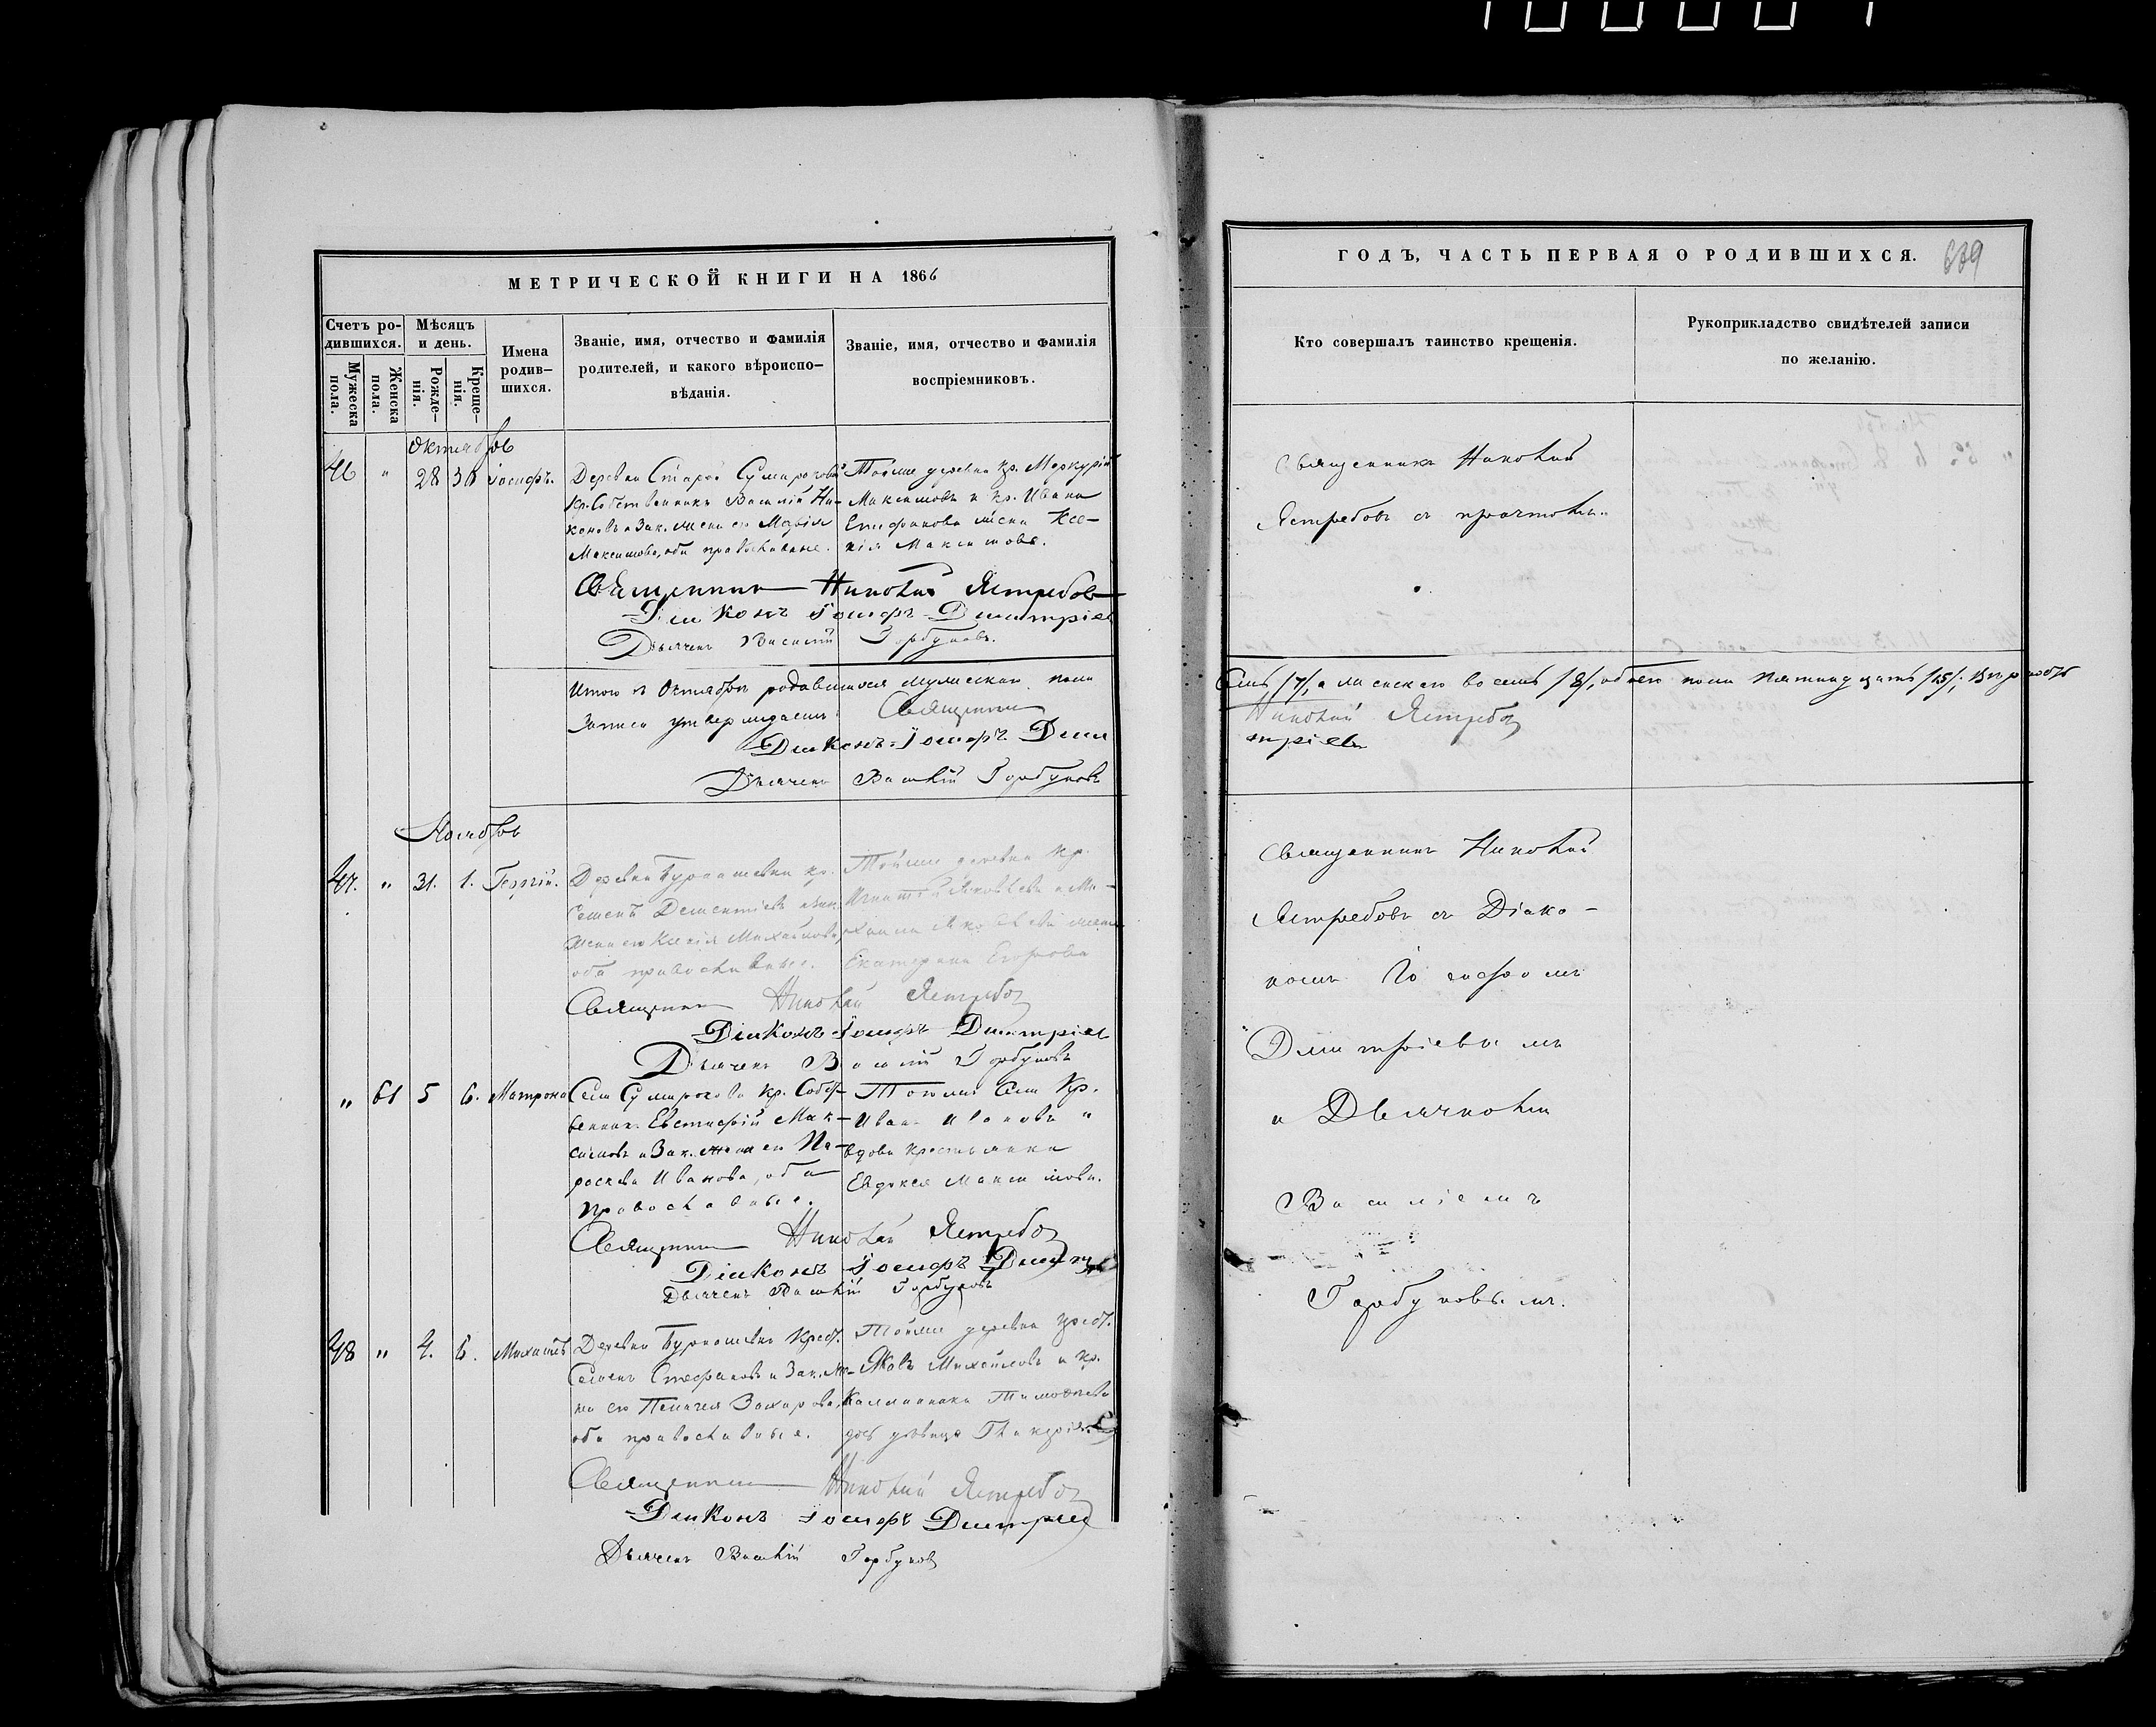 МЕТРИЧЕСКОЙ КНИГИ НА 1866
Счетъ ро-
дившихся.
Мужеска
пола.
Женска
пола.
Мѣсяцъ
и день.
Рожде-
нія.
Креще-
нія.
Имена
родив-
шихся.
Званіе, имя, отчество и фамилія
родителей, и какого вѣроиспо-
вѣданія.
Званіе, имя, отчество и фамилія
воспріемниковъ.
Октябрь
46 " 28 30 Іосифъ.
Деревни Старой
Кр. Собственникъ Василій Ни-
коновъ и Зак. жена его Марія
Максимова, оба православные.
Тойже деревни Кр. Меркурій
Максимовъ и кр. Ивана
Епифанова жена Ксе-
нія Максимова.
Священникъ Николай Ястребовъ
Діаконъ Іосифъ Дмитріев
Дьячекъ Василій Горбуновъ.
Итого в Октябрѣ родившихся мужескаго пола
Записи утверждаемъ: Священникъ
Діаконъ Іосифъ Дми
Дьячекъ Василій Горбуновъ
Ноябрь
47. " 31. 1. Георгій.
Деревни кр.
Семенъ Дементіевъ и Зак.
жена его Ксенія Михайлова,
оба православные.
Тойже деревни Кр.
Игнатій Яковлевъ и Ми-
хаила Яковлева жена
Екатерина Егорова
Священникъ Николай Ястребов
Діаконъ Іосифъ Дмитріев
Дьячекъ Василій Горбуновъ
" 61 5 6. Матрона
Села Сумарокова кр. Собст-
венникъ Евстафій Мак-
симовъ и Зак. жена его Па-
раскева Иванова, оба
Православные.
Тогоже Села Кр.
Иванъ Ивановъ и
вдова крестьянка
Евдокія Максимова.
Священникъ Николай Ястребов
Діаконъ Іосифъ
Дьячекъ Василій Горбуновъ
48 " 4. 6. Михаилъ
Деревни Крест.
Семенъ Стефановъ и Зак. же-
на его Пелагея Захарова,
оба православные.
Тойже деревни Крест.
Яковъ Михайловъ и кр.
Тимофеева
дочь дѣвица
Священникъ Николай Ястребов
Діаконъ Іосифъ Дмитріев
Дьячекъ Василій Горбунов
ГОДЪ, ЧАСТЬ ПЕРВАЯ О РОДИВШИХСЯ.
Кто совершалъ таинство крещенія.
Рукоприкладство свидѣтелей записи
по желанію.
Священникъ Николай
Ястребовъ съ причтомъ.
Семь /7/, а женскаго восемь /8/, обоего пола пятнадцать /15/;
Николай Ястребов
тріевъ
Священникъ Николай
Ястребовъ съ Діако-
номъ Іосифомъ
Дмитріевымъ
и Дьячкомъ
Василіемъ
Горбуновымъ.